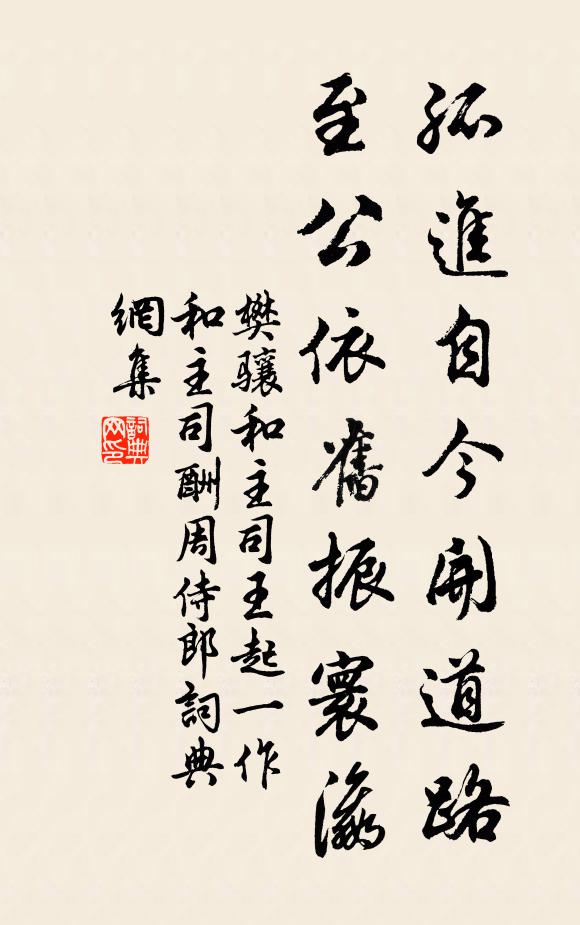 孤進自今開道路
至公依舊振寰瀛
樊骧和主司王起一作
和主司酬周侍郎詞典
網集
詞典網印